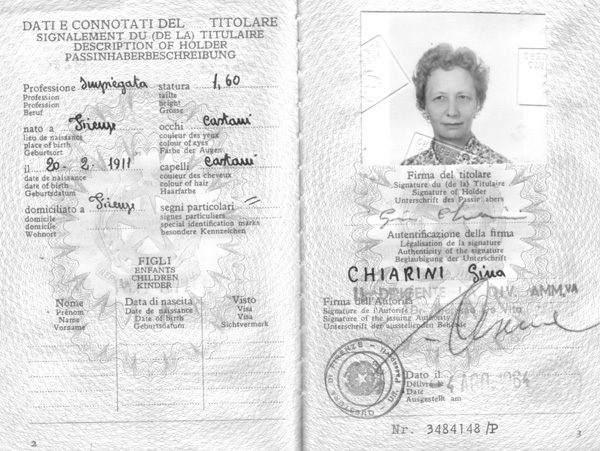 DATI E CONNOTATI DEL TITOLARE
SIGNALEMENT DU (DE LA) TITULAIRE
DESCRIPTION OF HOLDER
PASSINHABERBESCHREIBUNG
Professione Impiegata
Profession
Profession
Beruf
statura 1,60
taille
height
Grösse
nato a Firenze
lieu de naissance
place of birth
Geburtsort
occhi Castani
couleur des yeux
colour of eyes
Farbe der Augen
il 20-2-1911
date de naissance
date of birth
Geburtsdatum
capelli Castani
couleur des cheveux
colour of hair
Haarfarbe
domiciliato a Firenze
domicile
domicile
Wohnort
segni particolari //
signes particuliers
special identification marks
besondere Kennzeichen
FIGLI
ENFANTS
CHILDREN
KINDER
Nome
Prénom
Name
Vorname
Data di nascita
Date de naissance
Date of birth
Geburtsdatum
Visto
Visa
Visa
Sichtvermerk
2
Firma del titolare
Signature du (de la) Titulaire
Signature of Holder
Unterschrift des Passinhabers
Gina Chiarini
Autentificazione della firma
Légalisation de la signature
Authenticity of the signature
Beglaubigung der Unterschrift
CHIARINI Gina
IL DIRIGENTE LA DIV. AMM.VA
Firma dell'Autorità
Signature de l'Autorité
Signature of the issuing Authority
Unterschrift der ausstellenden Behörde
QUESTURA DI FIRENZE
Dato il
Délivré le
Date
Ausgestellt am
4 1964
Nr. 3484148/P
3